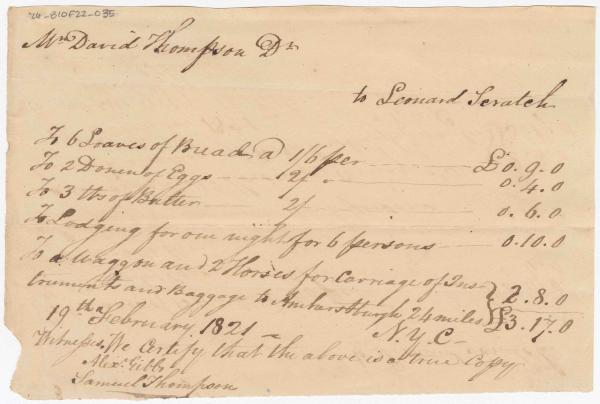 24-B10F22-035
Mr. David Thompson Dr.
to Leonard Scratch
To 6 Loaves of Bread @ 1/6 per £0.9.0
To 2 Dozen of Eggs 2/ 0.4.0
To 3 lbs of Butter 2/ 0.6.0
To Lodging for one night for 6 persons 0.10.0
To a Waggon and 2 Horses for Carriage of Ins-
truments and Baggage to Amhurstburgh 24 miles } 2.8.0
19th February 1821 N.Y.C £3.17.0
Witness, We Certify that the above is a true Copy
Alexr. Gibbs
Samuel Thompson